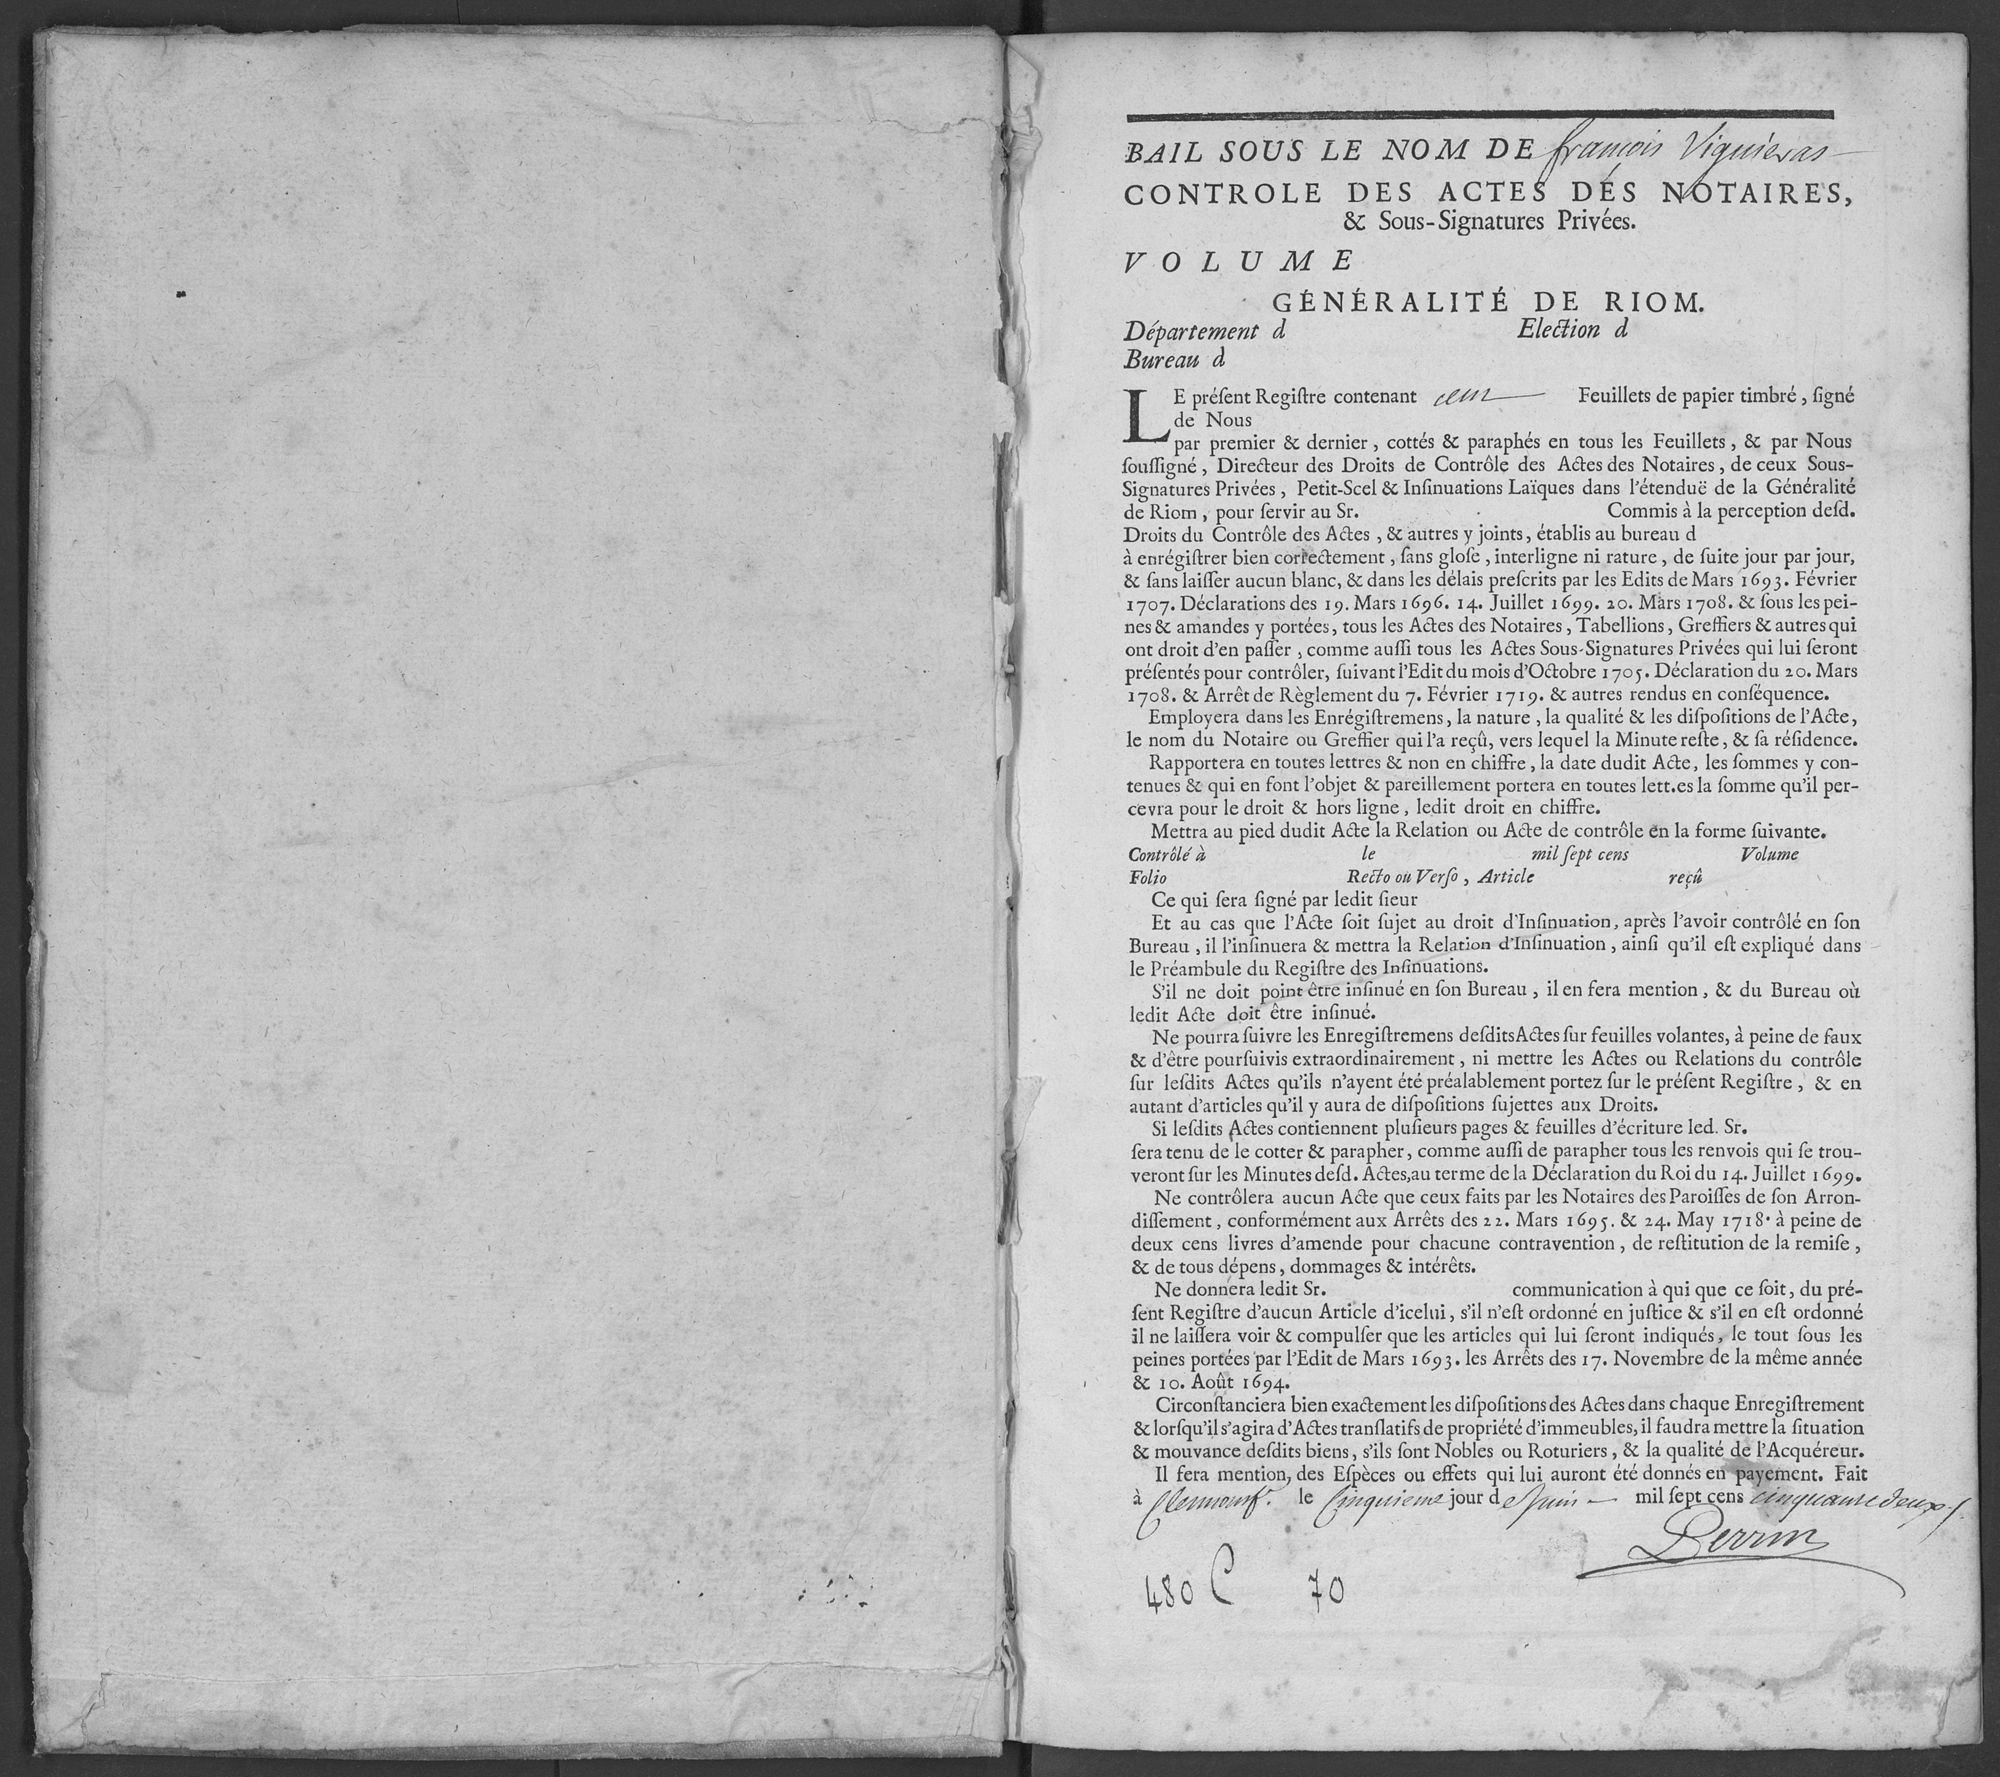 BAIL SOUS LE NOM DE francois Viguieras
CONTROLE DES ACTES DES NOTAIRES,
& Sous-Signatures Privées.
VOLUME
GÉNÉRALITÉ DE RIOM.
Département d Election d
Bureau d
LE préſent Regiſtre contenant cent Feuillets de papier timbré, ſigné
de Nous
par premier & dernier, cottés & paraphés en tous les Feuillets, & par Nous
ſouſſigné, Directeur des Droits de Contrôle des Actes des Notaires, de ceux Sous-
Signatures Privées, Petit-Scel & Inſinuations Laïques dans l'étenduë de la Généralité
de Riom, pour ſervir au Sr. Commis à la perception deſd.
Droits du Contrôle des Actes, & autres y joints, établis au bureau d
à enrégiſtrer bien correctement, ſans gloſe, interligne ni rature, de ſuite jour par jour,
& ſans laiſſer aucun blanc, & dans les délais preſcrits par les Edits de Mars 1693. Février
1707. Déclarations des 19. Mars 1696. 14. Juillet 1699. 20. Mars 1708. & ſous les pei-
nes & amandes y portées, tous les Actes des Notaires, Tabellions, Greffiers & autres qui
ont droit d'en paſſer, comme auſſi tous les Actes Sous-Signatures Privées qui lui ſeront
préſentés pour contrôler, ſuivant l'Edit du mois d'Octobre 1705. Déclaration du 20. Mars
1708. & Arrêt de Règlement du 7. Février 1719. & autres rendus en conſéquence.
Employera dans les Enrégiſtremens, la nature, la qualité & les diſpoſitions de l'Acte,
le nom du Notaire ou Greffier qui l'a reçû, vers lequel la Minute reſte, & ſa réſidence.
Rapportera en toutes lettres & non en chiffre, la date dudit Acte, les ſommes y con-
tenues & qui en font l'objet & pareillement portera en toutes lett.es la ſomme qu'il per-
cevra pour le droit & hors ligne, ledit droit en chiffre.
Mettra au pied dudit Acte la Relation ou Acte de contrôle en la forme ſuivante.
Contrôlé à le mil ſept cens Volume
Folio Recto ou Verſo, Article reçû
Ce qui ſera ſigné par ledit ſieur
Et au cas que l'Acte ſoit ſujet au droit d'Inſinuation, après l'avoir contrôlé en ſon
Bureau, il l'inſinuera & mettra la Relation d'Inſinuation, ainſi qu'il eſt expliqué dans
le Préambule du Regiſtre des Inſinuations.
S'il ne doit point être inſinué en ſon Bureau, il en fera mention, & du Bureau où
ledit Acte doit être inſinué.
Ne pourra ſuivre les Enregiſtremens deſdits Actes ſur feuilles volantes, à peine de faux
& d'être pourſuivis extraordinairement, ni mettre les Actes ou Relations du contrôle
ſur leſdits Actes qu'ils n'ayent été préalablement portez ſur le préſent Regiſtre, & en
autant d'articles qu'il y aura de diſpoſitions ſujettes aux Droits.
Si leſdits Actes contiennent pluſieurs pages & feuilles d'écriture led. Sr.
ſera tenu de le cotter & parapher, comme auſſi de parapher tous les renvois qui ſe trou-
veront ſur les Minutes deſd. Actes, au terme de la Déclaration du Roi du 14. Juillet 1699.
Ne contrôlera aucun Acte que ceux faits par les Notaires des Paroiſſes de ſon Arron-
diſſement, conformément aux Arrêts des 22. Mars 1695. & 24. May 1718. à peine de
deux cens livres d'amende pour chacune contravention, de reſtitution de la remiſe,
& de tous dépens, dommages & intérêts.
Ne donnera ledit Sr. communication à qui que ce ſoit, du pré-
ſent Regiſtre d'aucun Article d'icelui, s'il n'eſt ordonné en juſtice & s'il en eſt ordonné
il ne laiſſera voir & compulſer que les articles qui lui ſeront indiqués, le tout ſous les
peines portées par l'Edit de Mars 1693. les Arrêts des 17. Novembre de la même année
& 10. Août 1694.
Circonſtanciera bien exactement les diſpoſitions des Actes dans chaque Enregiſtrement
& lorſqu'il s'agira d'Actes tranſlatifs de propriété d'immeubles, il faudra mettre la ſituation
& mouvance deſdits biens, s'ils ſont Nobles ou Roturiers, & la qualité de l'Acquéreur.
Il fera mention, des Eſpèces ou effets qui lui auront été donnés en payement. Fait
à Clermont. le Cinquieme jour de Juin mil ſept cens cinquante deux
Perrin
480 C 70